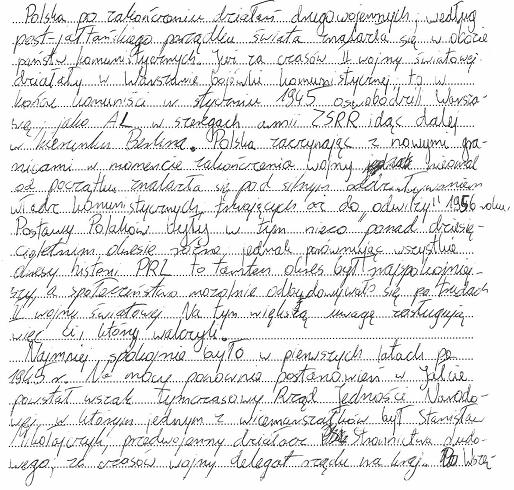 Polska po zakończeniu działań drugowojennych, według
post-jałtańskiego porządku świata znalazła się w obozie
państw komunistycznych. Już za czasów II wojny światowej
działały w Warszawie bojówki komunistycznej, to w
końcu komuniści w styczniu 1945 oswobodzili Warsza-
wę, jako AL w szeregach armii ZSRR idąc dalej
w kierunku Berlina. Polska zaczynając z nowymi gra-
nicami w momencie zakończenia wojny niemal
od początku znalazła się pod silnym oddziaływaniem
władz komunistycznych trwających aż do "odwilży" 1956 roku.
Postawy Polaków były w tym nieco ponad dziesię-
cioletnim okresie różne, jednak porównując wszystkie
okresy historii PRL to tamten okres był najspokojniej-
szy, a społeczeństwo mozolnie odbudowywało się po trudach
II wojny światowej. Na tym większą uwagę zasługują
więc ci, którzy walczyli.
Najmniej spokojnie było w pierwszych latach po
1945 r. Na mocy ponownie postanowień w Jałcie
powstał wszak Tymczasowy Rząd Jedności Narodo-
wej, w którym jednym z wicemarszałków był Stanisław
Mikołajczyk, przedwojenny działacz Stronnictwa Ludo-
wego, za czasów wojny delegat rządu na kraj. Po